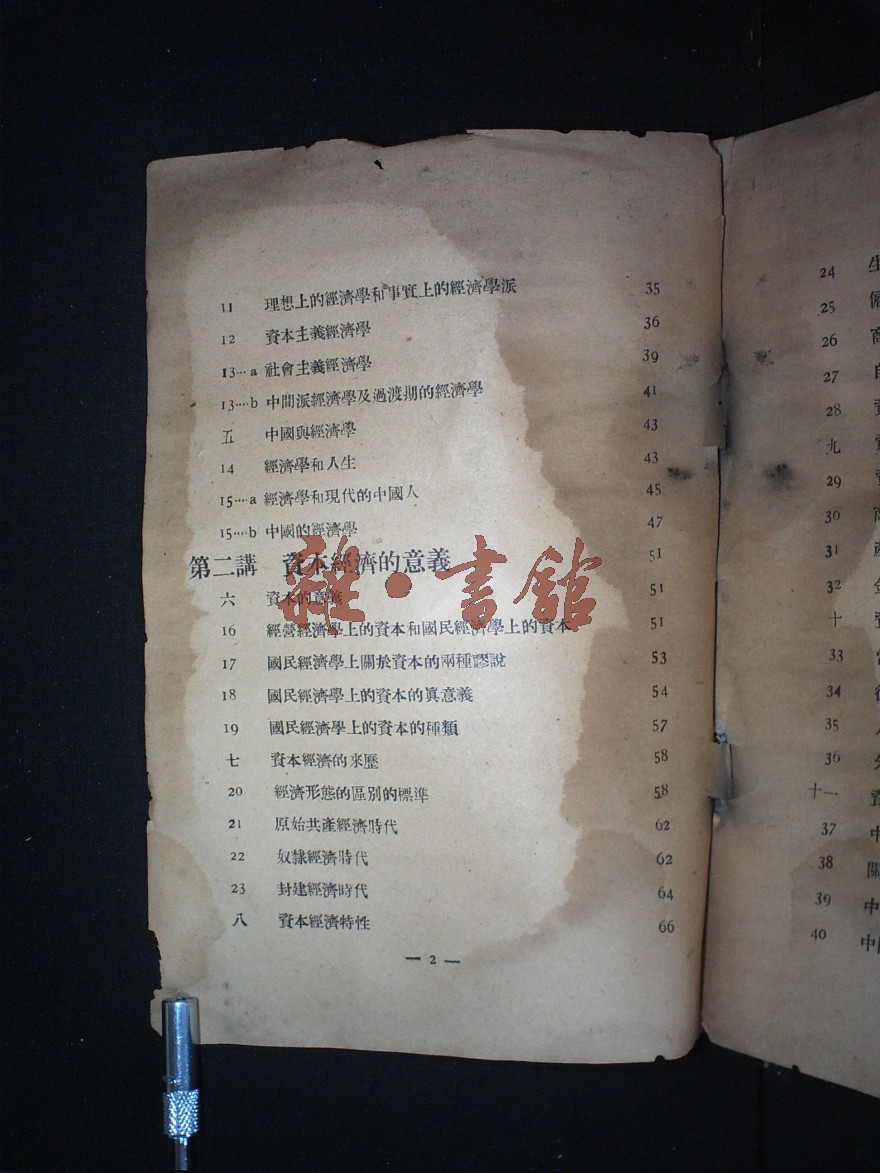 11 理想上的經濟學和事實上的經濟學派 35
12 資本主義經濟學 36
13…a 社會主義經濟學 39
13…b 中間派經濟學及過渡期的經濟學 41
五 中國與經濟學 43
14 經濟學和人生 43
15…a 經濟學和現代的中國人 45
15…b 中國的經濟學 47
第二講 資本經濟的意義 51
六 資本的意義 51
16 經營經濟學上的資本和國民經濟學上的資本 51
17 國民經濟學上關於資本的兩種謬說 53
18 國民經濟學上的資本的眞意義 54
19 國民經濟學上的資本的種類 57
七 資本經濟的來歷 58
20 經濟形態的區別的標準 58
21 原始共產經濟時代 62
22 奴隸經濟時代 62
23 封建經濟時代 64
八 資本經濟特性 66
— 2 —
雜·書館
24 生
25
26 商
27
28 資
九 資
29 資
30 商
31 產
32 金
十 資
33
34
35
36
十一 資
37 中
38 關
39 中
40 中